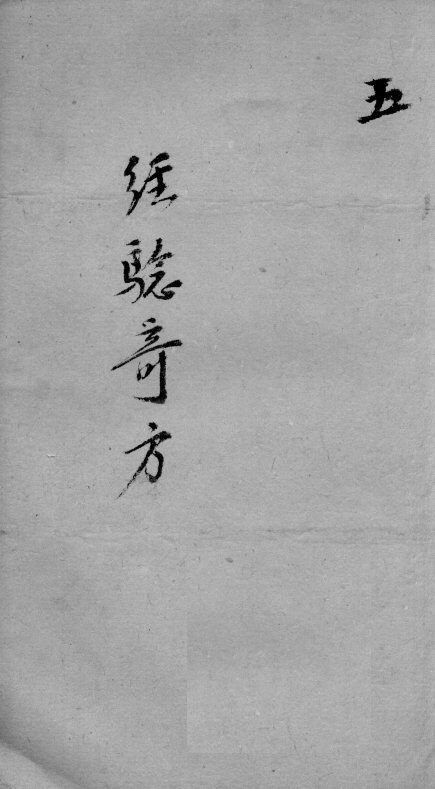 五
經驗奇方